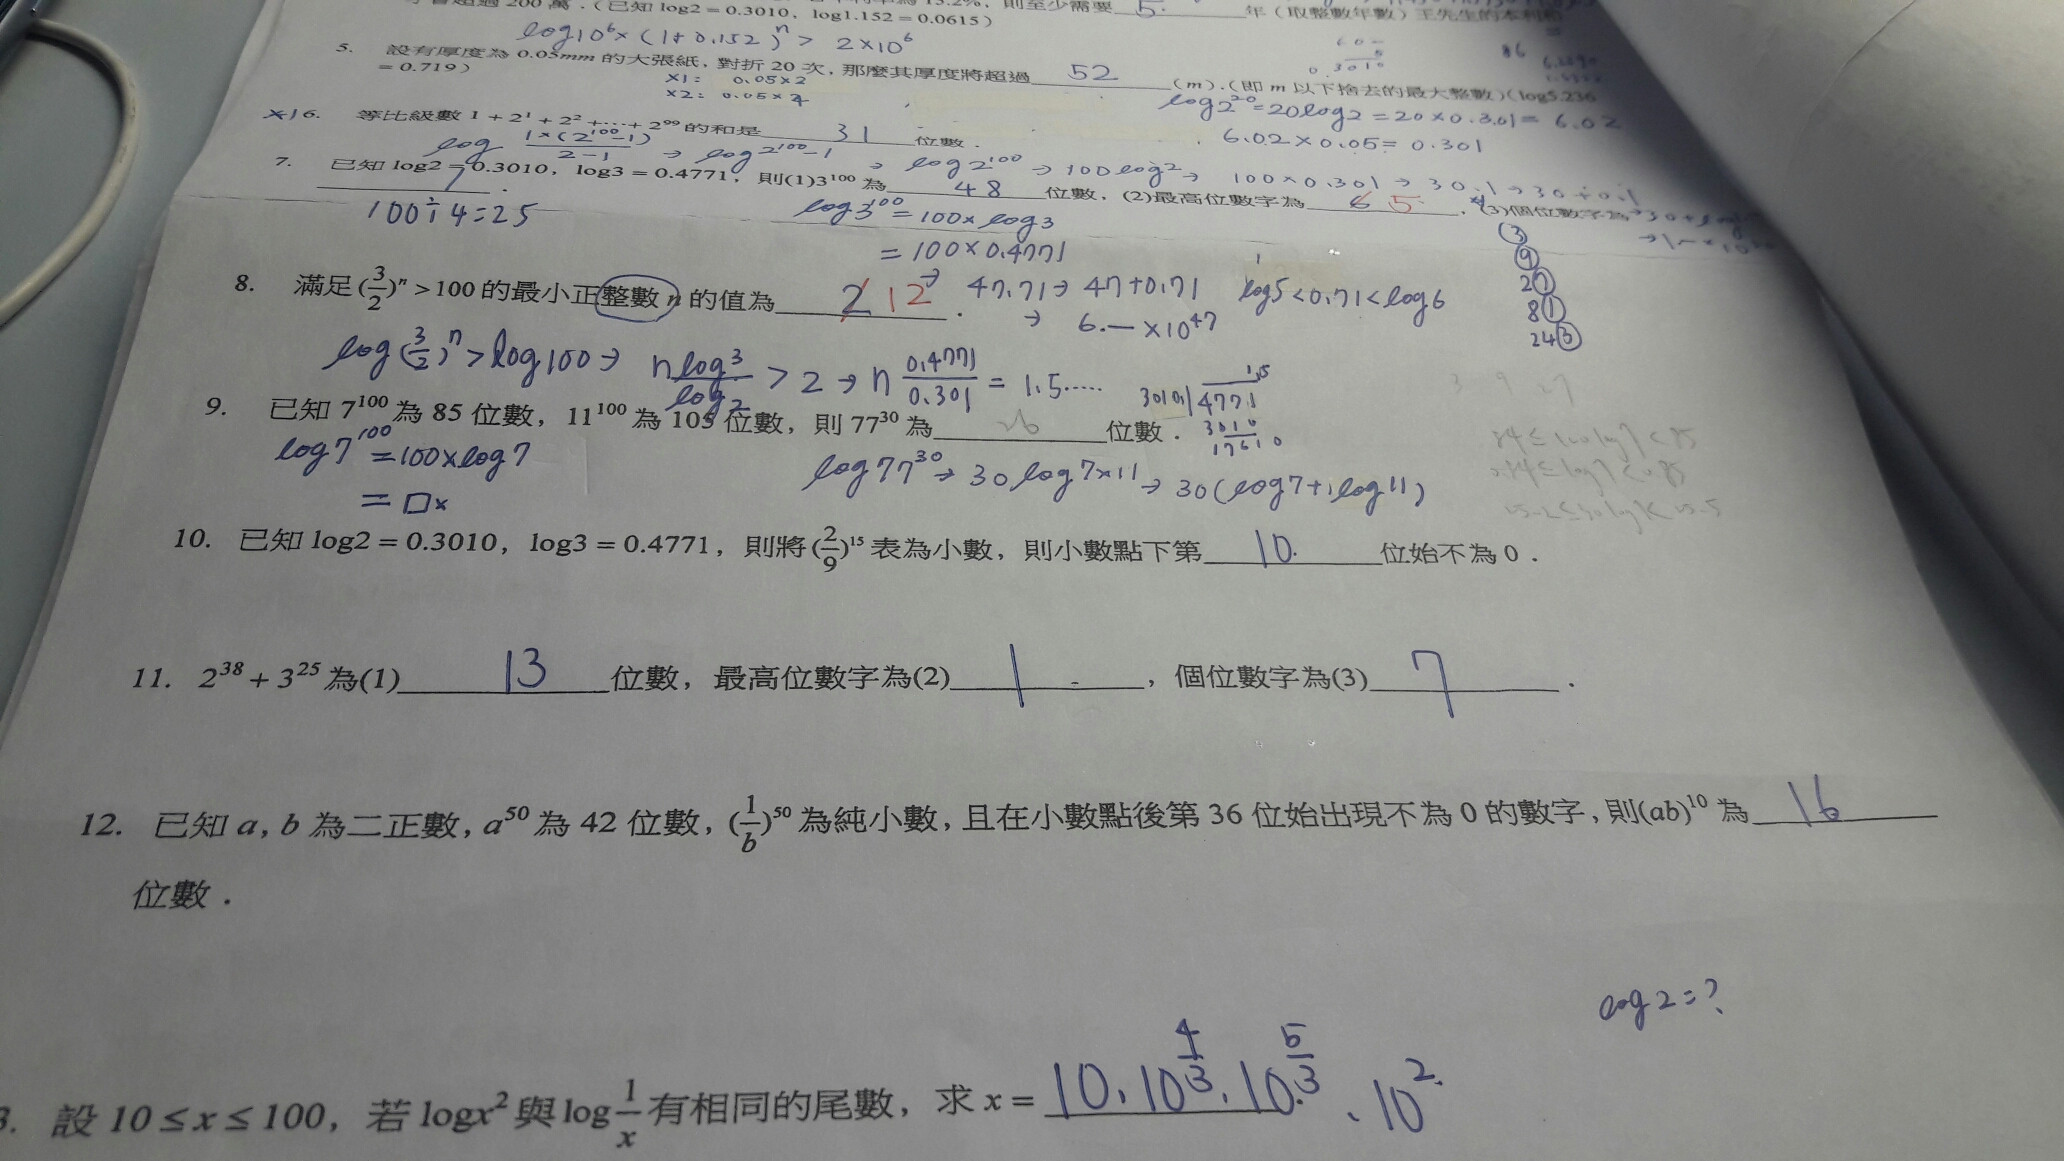 200 萬．（已知 log2 = 0.3010，log1.152 = 0.0615）
則至少需要 5. 年（取整數年數）王先生的本利和
log10⁶×(1+0.152)ⁿ > 2×10⁶
5. 設有厚度為 0.05mm 的大張紙，對折 20 次，那麼其厚度將超過 52 (m)．（即 m 以下捨去的最大整數）(log5.236
= 0.719)
×1： 0.05×2
×2： 0.05×4
log2²⁰=20log2=20×0.301= 6.02
6.02×0.05= 0.301
6. 等比級數 1 + 2¹ + 2² +⋯+ 2⁹⁹ 的和是 31 位數．
log 1×(2¹⁰⁰-1)/2-1 → log2¹⁰⁰-1 → log2¹⁰⁰ → 100log2 → 100×0.301 → 30.1 → 30+0.1
7. 已知 log2 = 0.3010，log3 = 0.4771，則(1)3¹⁰⁰ 為 48 位數，(2)最高位數字為 6 5．，(3)個位數字為
100÷4=25
log3¹⁰⁰=100×log3
=100×0.4771
→ 47.71 → 47+0.71 log5<0.71<log6
→ 6.—×10⁴⁷
3
9
27
81
243
8. 滿足 (3/2)ⁿ > 100 的最小正整數 n 的值為 2 12．
log(3/2)ⁿ > log100 → n log3/log2 > 2 → n 0.4771/0.301 = 1.5.....
1.5
3010 4771
3010
17610
3 9 27
9. 已知 7¹⁰⁰ 為 85 位數，11¹⁰⁰ 為 105 位數，則 77³⁰ 為 26 位數．
log7¹⁰⁰=100×log7
=□×
log77³⁰ → 30log7×11 → 30(log7+log11)
10. 已知 log2 = 0.3010，log3 = 0.4771，則將 (2/9)¹⁵ 表為小數，則小數點下第 10. 位始不為 0．
11. 2³⁸ + 3²⁵ 為(1) 13 位數，最高位數字為(2) 1，個位數字為(3) 7．
12. 已知 a, b 為二正數，a⁵⁰ 為 42 位數，(1/b)⁵⁰ 為純小數，且在小數點後第 36 位始出現不為 0 的數字，則(ab)¹⁰ 為 16
位數．
log2=?
3. 設 10 ≤ x ≤ 100，若 logx² 與 log 1/x 有相同的尾數，求 x = 10、10^(4/3)、10^(5/3)、10²